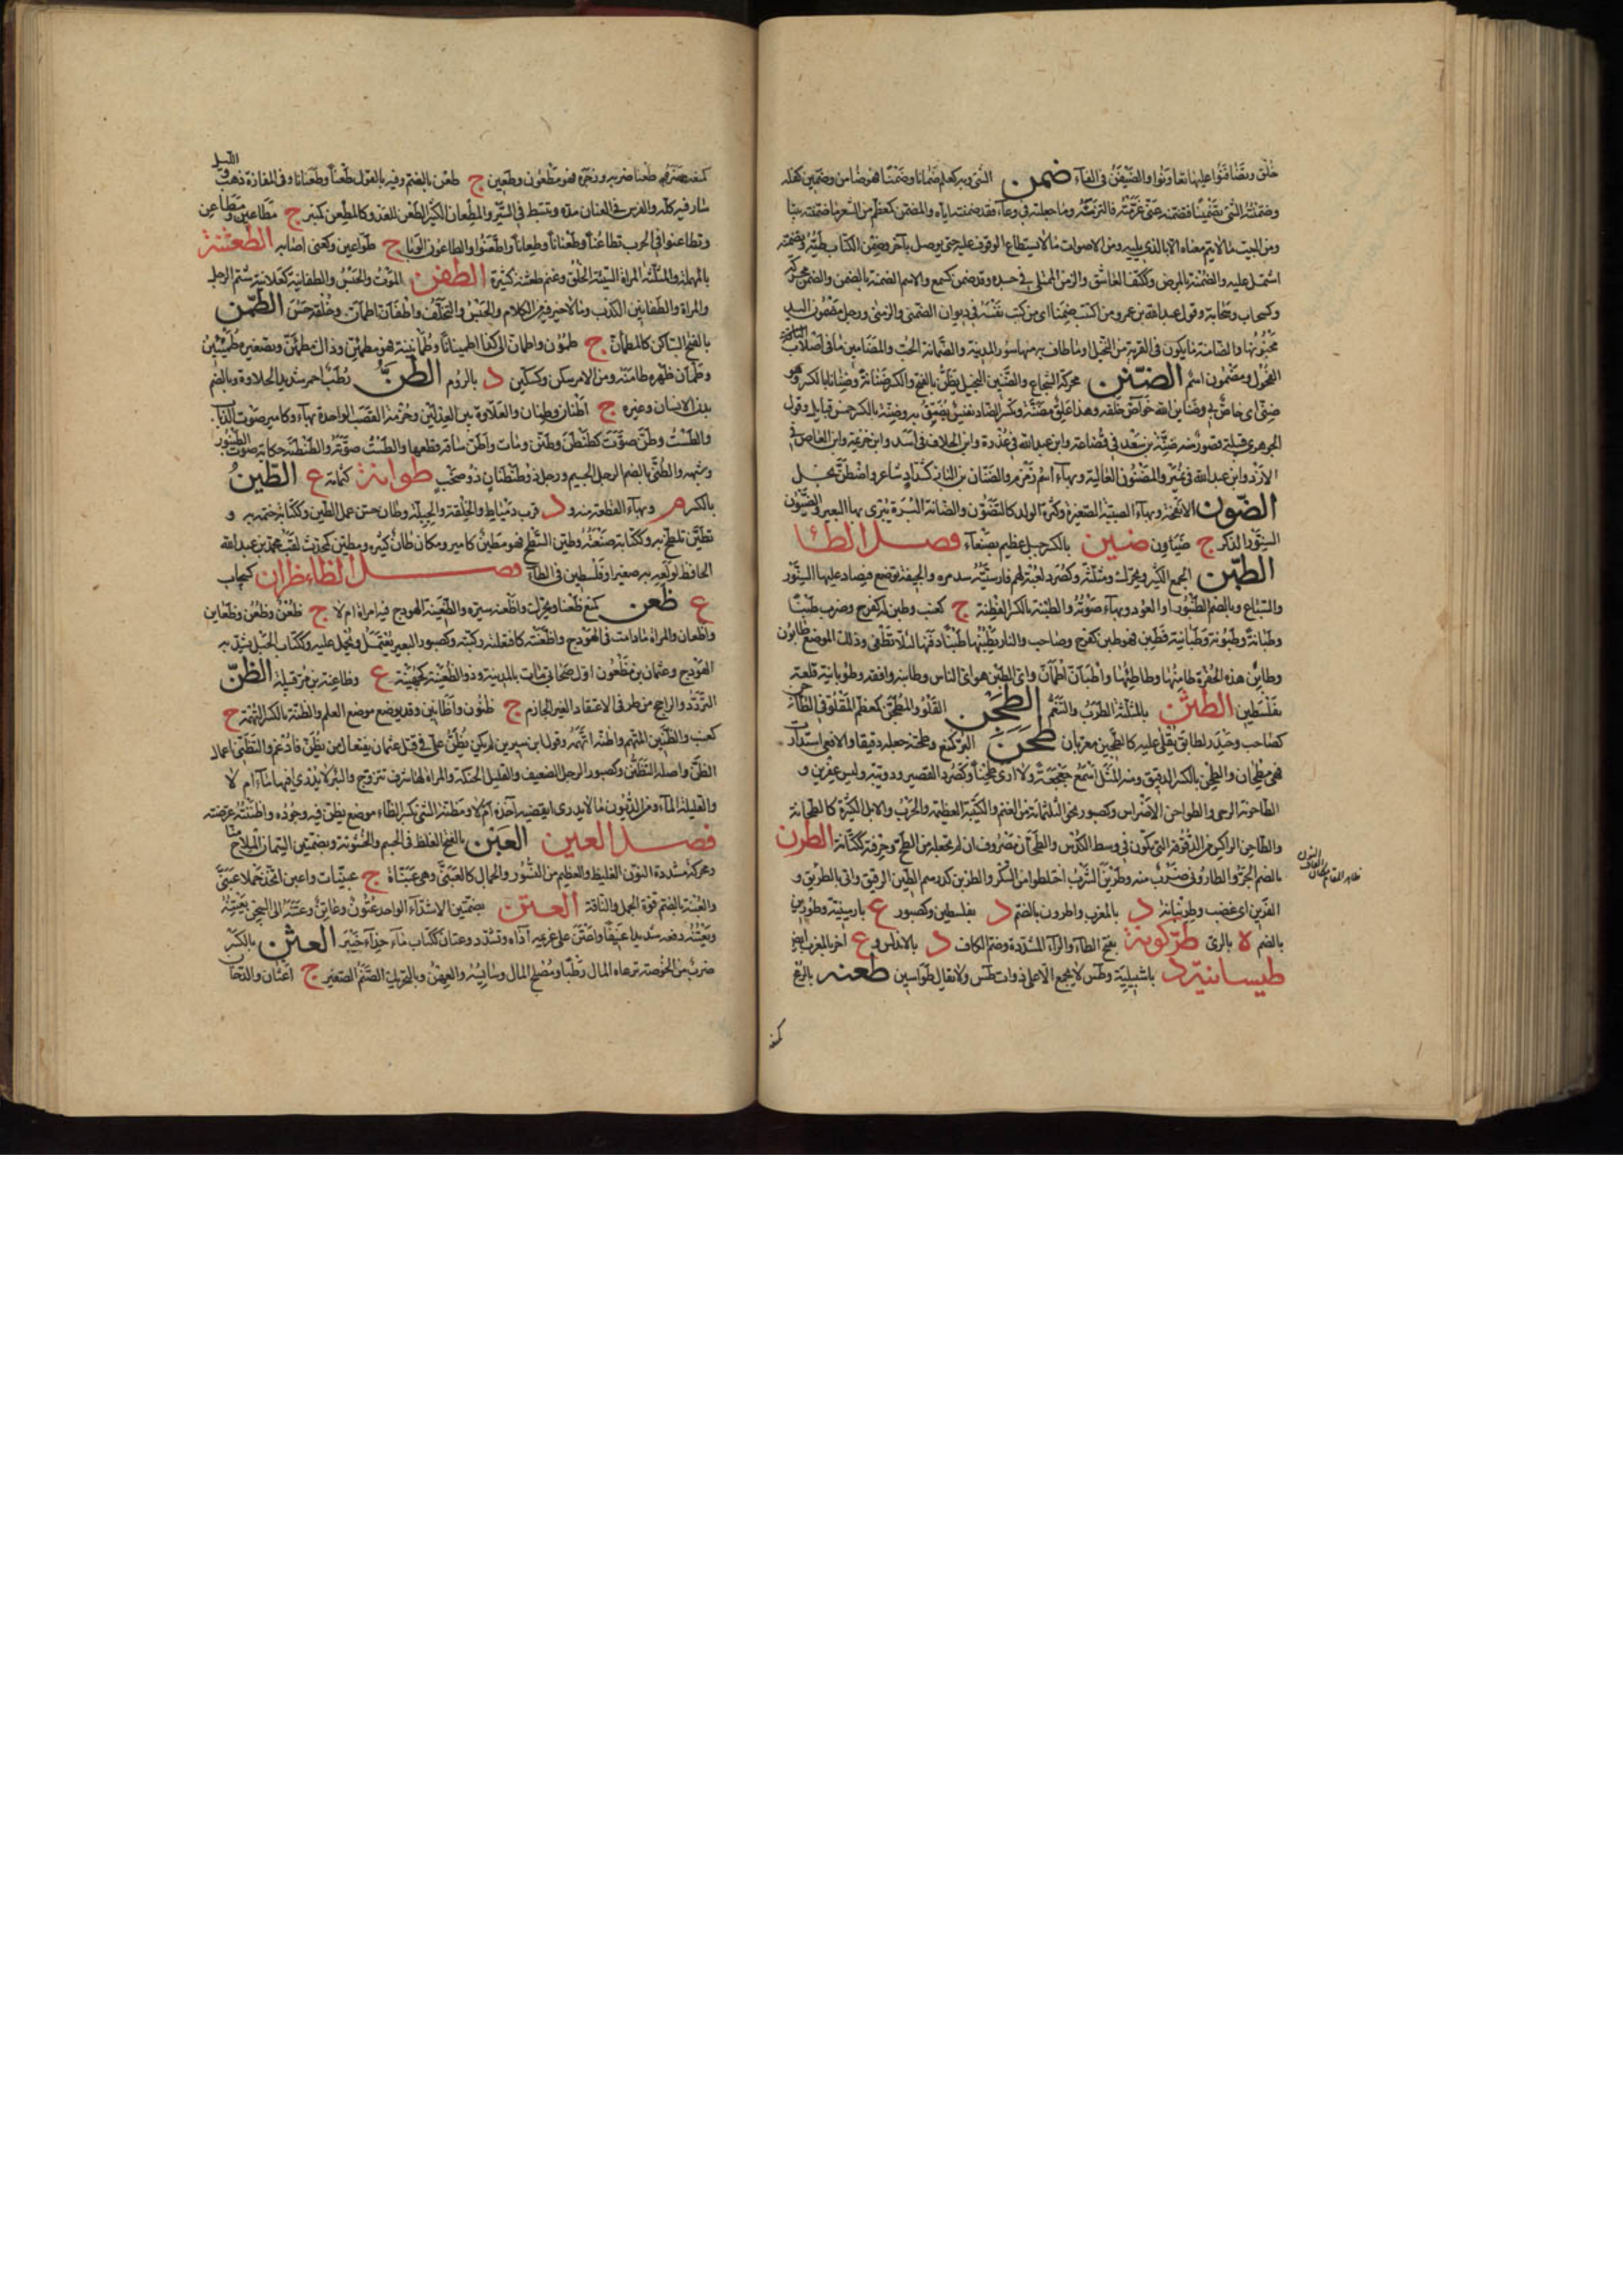 خلق وتضافنوا عليه تعاونوا والضيفن فى الفاء ضمن الشئ وبه كعلم ضمانا وضمنا فهو ضامن وضمين كفله
وضمنته الشئ تضمينا فتضمنه عنى غرمته فالتزمته وما جعلته فى وعاء فقد ضمنته اياه والمضمن كمعظم من الشعر ما ضمنته بيتا
ومن البيت ما لا يتم معناه الا بالذى يليه ومن الاصوات ما لا يستطاع الوقوف عليه حتى يوصل بآخر وضمن الكتاب طيه وتضمنه
اشتمل عليه والضمنة بالضم المرض وككتف العاشق والزمن المبتلى فى جسده وقد ضمن كسمع والاسم الضمنة بالضم والضمن محركة
وكسحاب وسحابة وقول عبد الله بن عمرو من اكتتب ضمنا اى من كتب نفسه فى ديوان الضمنى والزمنى ورجل مضمون اليد
مخبونها والضامنة ما يكون فى القرية من النخيل او ما اطاف به منها سور المدينة والضمانة الحب والمضامين ما فى اصلاب
الفحول ومضمون اسم الضنن محركة الشجاع والضنين البخيل يضن بالفتح والكسر ضنانة وضنا بالكسر وهو
ضنى اى خاص بى وضنائن الله خواص خلقه وهذا علق مضنة وتكسر الضاد نفيس يضن به وضنة بالكسر خمس قبائل وقول
الجوهرى قبيلة قصور ضنة بن سعد فى قضاعة وابن عبد الله فى عذرة وابن الحلاف فى اسد وابن خزيمة وابن العاص فى
الازد وابن عبد الله فى نمير والمضنون الغالية وبهاء اسم زمزم والضنان بن المنان كشداد شاعر واضطن بخل
الضون الانفحة وبهاء الصبية الصغيرة وكثرة الولد كالتضون والضانة البرة يبرى بها البعير والضيون
السنور الذكر ج ضياون ضين بالكسر جبل عظيم بصنعاء فصل الطاء
الطبن الجمع الكثير ويحرك ومثلثة وكصرد لعبة لهم فارسيته سدره والجيفة توضع فيصاد عليها النسور
والسباع وبالضم الطنبور او العود وبهاء صوته والطبنة بالكسر الفطنة ج كعنب وطبن له كفرح وضرب طبنا
وطبانة وطبونة وطبانية فطن فهو طبن كفرح وصاحب والنار يطبنها طبنا دفنها لئلا تطفى وذلك الموضع طابون
وطابن هذه الحفيرة طامنها وطأطئها واطبأن اطمأن واى الطبن هو اى الناس وطابنه وافقه وطوبانية قلعة
بفلسطين الطثن بالمثلثة الطرب والتنعم الطجن القلو والمطجن كمعظم المقلو فى الطاجن
كصاحب وحيدر لطابق يقلى عليه كالطيجن معربان طحن البر كمنع وطحنه جعله دقيقا والافعى استدارت
فهى مطحان والطحن بالكسر الدقيق ومنه المثل اسمع جعجعة ولا ارى طحنا وكصرد القصير ودويبة وليث عفرين و
الطاحونة الرحى والطواحن الاضراس وكصبور نحو الثلثمائة من الغنم والكتيبة العظيمة والحرب والابل الكثيرة كالطحانة
والطاحن الراكس من الدقوقة التى تكون فى وسط الكدس والطحان مصروف ان لم تجعله من الطح وحرفته ككتابة الطرن
بالضم الخز والطارونى ضرب منه وطرين الشرب اختلطوا من السكر والطرين كدرهم الطين الرقيق واتى بالطرين و
الغرين اى غضب وطريانة د بالمغرب واطرون بالضم د بفلسطين وكصبور ع بارمينية وطورين
بالضم ة بالرى طركونة بفتح الطاء والراء المشددة وضم الكاف د بالاندلس و ع اخر بالمغرب ايضا
طيسانية د باشبيلية وطس لا يجمع الا على ذوات طس ولا تقل طواسين طعنه بالرمح
كمنعه
كمنعه ونصره طعنا ضربه ووخزه فهو مطعون وطعين ج طعن بالضم وفيه بالقول طعنا وطعنانا وفى المفازة ذهب والليل
سار فيه كله والفرس فى العنان مده وتبسط فى السير والمطعان الكثير الطعن للعدو كالمطعن كمنبر ج مطاعين ومطاعن
وتطاعنوا فى الحرب تطاعنا وطعنانا وطعانا واطعنوا والطاعون الوباء ج طواعين وكعنى اصابه الطعثنة
بالمهملة والمثلثة المراة السيئة الخلق وغنم طعثنة كثيرة الطفن الموت والحبس والطفانية كعلانية شتم للرجل
والمراة والطفانين الكذب وما لا خير فيه من الكلام والحبس والتخلف واطفأن اطمأن وخلقه حسن الطمن
بالفتح الساكن كالمطمأن ج طمون واطمأن الى كذا اطمئنانا وطمأنينة فهو مطمئن وذاك مطمأن وتصغيره طميئين
وطمأن ظهره طامنه ومن الامر سكن وكسكين د بالروم الطن رطب احمر شديد الحلاوة وبالضم
بدن الانسان وغيره ج اطنان وطنان والعلاوة بين العدلين وحزمة القصب الواحدة بهاء وكامير صوت الذباب
والطست وطن صوت كطنطن وطنن ومات واطن ساقه قطعها والطست صوته والطنطنة حكاية صوت الطنبور
وشبهه والطنى بالضم الرجل الجسيم ورجل ذو طنطنان ذو صخب طوانة كثمامة ع الطين
بالكسر م وبهاء القطعة منه و د قرب دمياط والخلقة والجبلة وطان حسن عمل الطين وكتابه ختمه به و
تطين تلطخ به وككتابة صنعته وطين السطح فهو مطين كامير ومكان طان كثيره ومطين كمحدث لقب محمد بن عبد الله
الحافظ لولعه به صغيرا وفلسطين فى الطاء فصل الظاء ظران كسحاب
ع ظعن كمنع ظعنا ويحرك واظعنه سيره والظعينة الهودج فيه امراة ام لا ج ظعن وظعن وظعاين
واظعان والمراة ما دامت فى الهودج واظعنته كافتعلته ركبته وكصبور البعير يعتمل ويحمل عليه وككتاب الحبل يشد به
الهودج وعثمان بن مظعون اول صحابى مات بالمدينة وذو الظعينة كجهينة ع وظاعنة بن مر قبيلة الظن
التردد الراجح بين طرفى الاعتقاد الغير الجازم ج ظنون واظانين وقد يوضع موضع العلم والظنة بالكسر التهمة ج
كعنب والظنين المتهم واظنه اتهمه وقول ابن سيرين لم يكن يظن على فى قتل عثمان يفتعل من يظنن فادغم والتظنى اعمال
الظن واصله التظنن وكصبور الرجل الضعيف والقليل الحيلة والمراة لها شرف تتزوج والبئر لا يدرى افيها ماء ام لا
والقليلة الماء ومن الديون ما لا يدرى ايقضيه آخذه ام لا ومظنة الشئ بكسر الظاء موضع يظن فيه وجوده واظننته عرضته
فصل العين العبن بالفتح الغلظ فى الجسم والخشونة وبضمتين السمان الملاح منا
ومحركة مشددة النون الغليظ والعظيم من النسور والجمال كالعبنى وهى عبناة ج عبنيات واعبن اتخذ جملا عبنى
والعبنة بالضم قوة الجمل والناقة العتن بضمتين الاشداء الواحد عتون وعاتن وعتنه الى السجن يعتنه
ويعتنه دفعه شديدا عنيفا واعتن على غريمه آذاه وتشدد وعتان ككتاب ماء حذاء خيبر العثن بالكسر
ضرب من الخوصة ترعاه المال رطبا ومصلح المال وسائسه والعهن وبالتحريك الصنم الصغير ج اعثان والدخان